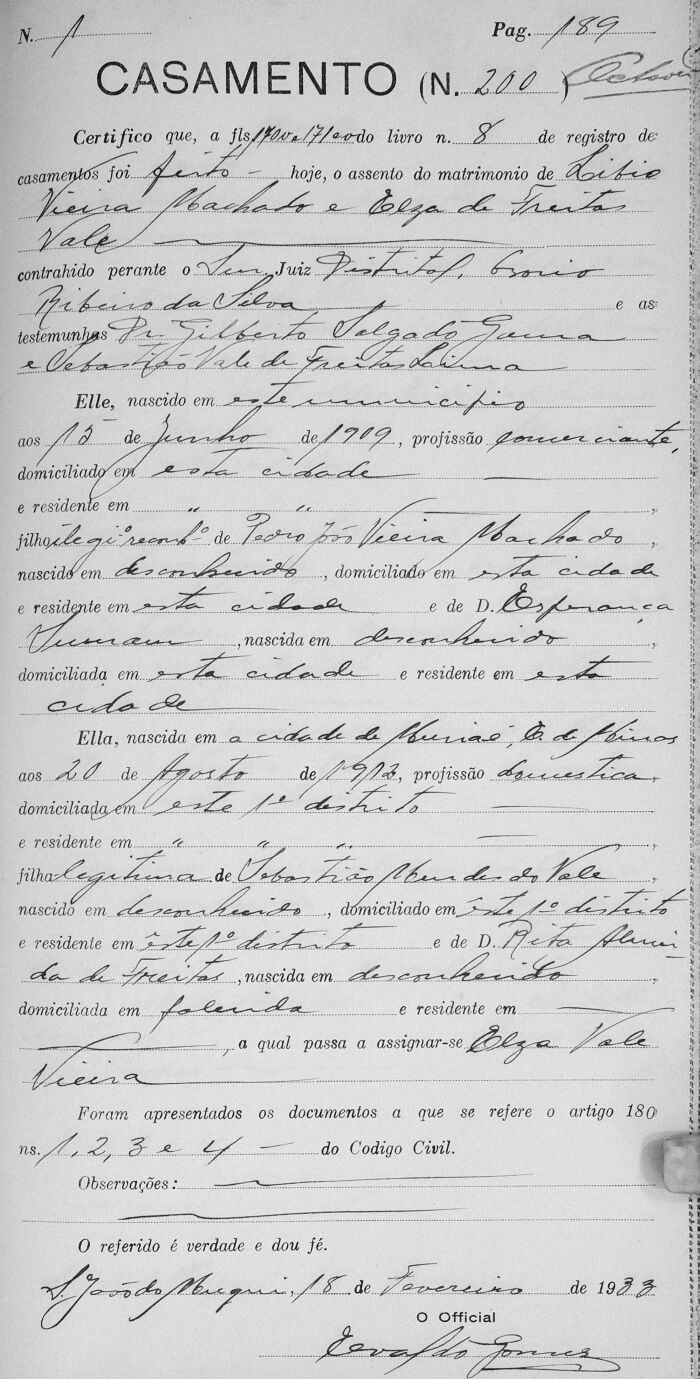 N. 1 Pag. 189
CASAMENTO (N. 200)
Certifico que, a fls. 170v e 171 e v do livro n. 8 de registro de
casamentos foi feito — hoje, o assento do matrimonio de Libio
Vieira Machado e Elza de Freitas
Vale
contrahido perante o Snr. Juiz Distrital,
Ribeiro da Silva e as
testemunhas Dr. Gilberto Salgado Gama
e Sebastião Vale de Freitas Lima
Elle, nascido em este municipio
aos 15 de Junho de 1909, profissão comerciante,
domiciliado em esta cidade
e residente em " "
filho ilegi.º reconh.º de Pedro João Vieira Machado,
nascido em desconhecido, domiciliado em esta cidade
e residente em esta cidade e de D. Esperança
, nascida em desconhecido,
domiciliada em esta cidade e residente em esta
cidade
Ella, nascida em a cidade de Muriaé, E. de Minas
aos 20 de Agosto de 1912, profissão domestica,
domiciliada em este 1º distrito
e residente em " " "
filha legitima de Sebastião Mendes do Vale,
nascido em desconhecido, domiciliado em êste 1º distrito
e residente em êste 1º distrito e de D. Rita Almei-
da de Freitas, nascida em desconhecido,
domiciliada em falecida e residente em
, a qual passa a assignar-se Elza Vale
Vieira
Foram apresentados os documentos a que se refere o artigo 180
ns. 1, 2, 3 e 4 — do Codigo Civil.
Observações:
O referido é verdade e dou fé.
S. João do Muqui, 18 de Fevereiro de 1933
O Official
Gomes